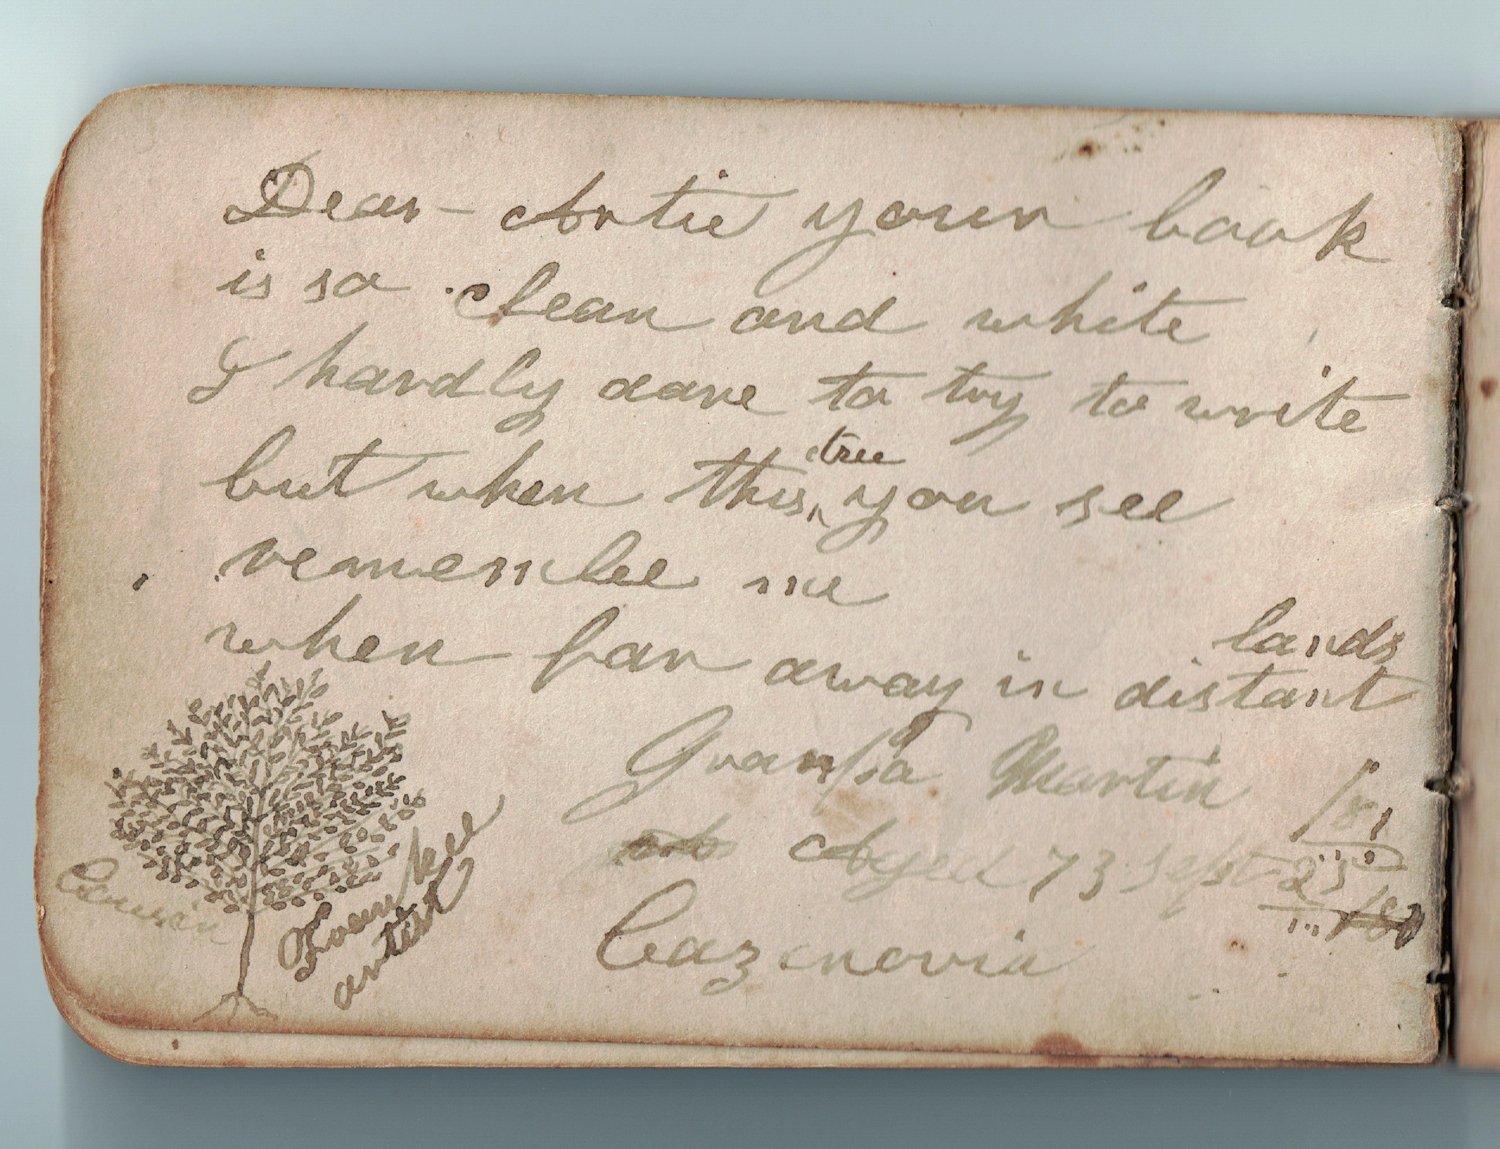 Dear- Artie your book
is so clean and white
I hardly dare to try to write
but when this tree you see
rememlee me
when far away in distant lands
Granpa Martin
Aged 73 Sept 25
Cazenovia
artist